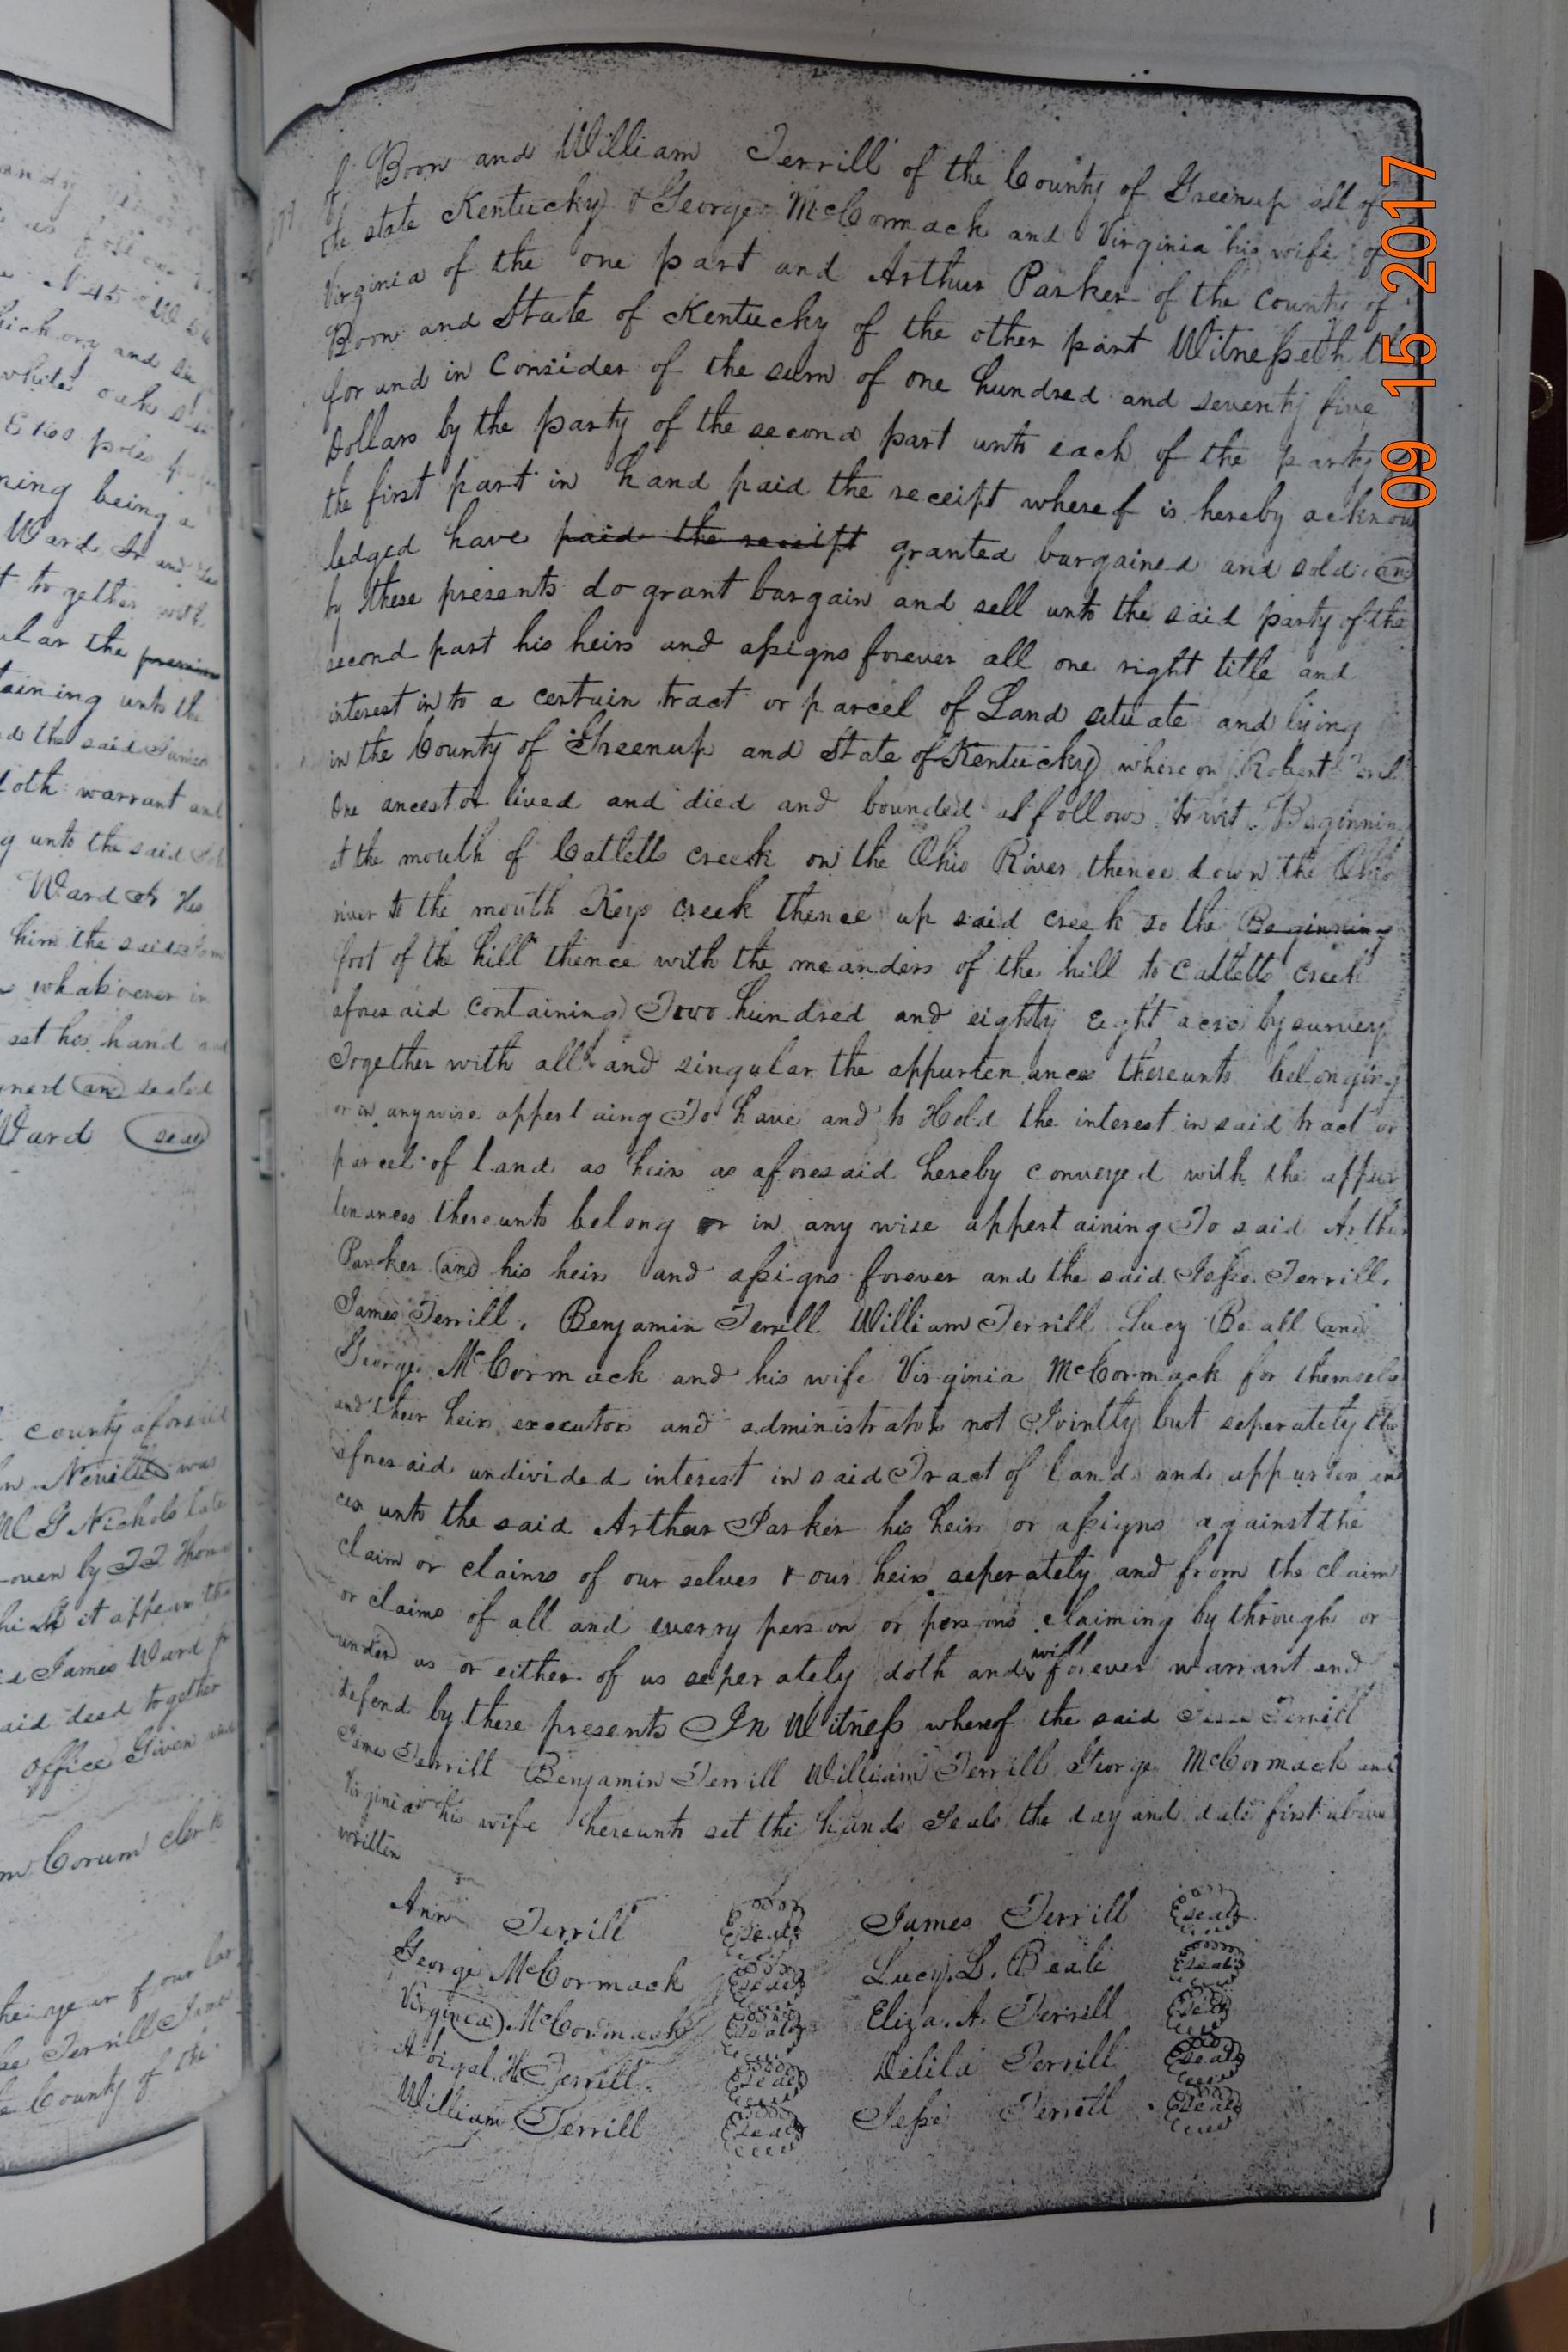 of Boon and William Terrill of the County of Greenup all of
the state Kentucky & George McCormack and Virginia his wife of
Virginia of the one part and Arthur Parker of the County of
Boon and State of Kentucky of the other part Witnesseth th
for and in Consider of the sum of one hundred and seventy five
Dollars by the party of the second part unto each of the party
the first part in hand paid the receipt whereof is hereby acknow
ledged have paid the receipt granted bargained and sold and
by these presents do grant bargain and sell unto the said party of the
second part his heirs and assigns forever all one right title and
interest in to a certain tract or parcel of Land situate and lying
in the County of Greenup and State of Kentucky where on Robert
One ancestor lived and died and bounded as follows to wit Beginning
at the mouth of Catletts creek on the Ohio River thence down the Ohio
river to the mouth Keys creek thence up said creek to the Beginning
foot of the hill thence with the meanders of the hill to Catletts Creek
aforesaid containing Two hundred and eighty Eight acres by survey
Together with all and singular the appurtenances thereunto belonging
or in anywise appertaing To have and to Hold the interest in said tract or
parcel of land as heirs as aforesaid hereby conveyed with the appur
tenances thereunto belong or in any wise appertaining To said Arthur
Parker and his heirs and assigns forever and the said Jesse Terrill.
James Terrill, Benjamin Terrill William Terrill Lucy Beall and
George McCormack and his wife Virginia McCormack for themselves
and their heirs executors and administrators not Jointly but seperately the
aforesaid undivided interest in said Tract of land and appurtenan
ces unto the said Arthur Parker his heirs or assigns against the
claim or claims of our selves & our heirs seperately and from the claim
or claims of all and everry person or persons claiming by through or
under us or either of us seperately doth and will forever warrant and
defend by these presents In Witness whereof the said Jesse Terrill
James Terrill Benjamin Terrill William Terrill George McCormack and
Virginia his wife hereunto set the hands Seals the day and date first above
written
Ann Terrill seal James Terrill seal
George McCormack seal Lucy L. Beale seal
Virginia McCormack seal Eliza A. Terrill seal
Abigal H Terrill seal Delila Terrill seal
William Terrill seal Jesse Terrill seal
09 15 2017
N 45 W
hickory and
white oak
E 160 poles
ning being a
Ward Jr and
together with
ular the premises
taining unto the
d the said James
doth warrant and
g unto the said
Ward Jr
him the said
whatsoever in
set his hand
gned and sealed
Ward seal
county aforesaid
Neville was
G Nichols late
oven by T T
it appears the
James Ward Jr
aid deed together
office Given
Corum clerk
the year of our
Terrill James
County of the